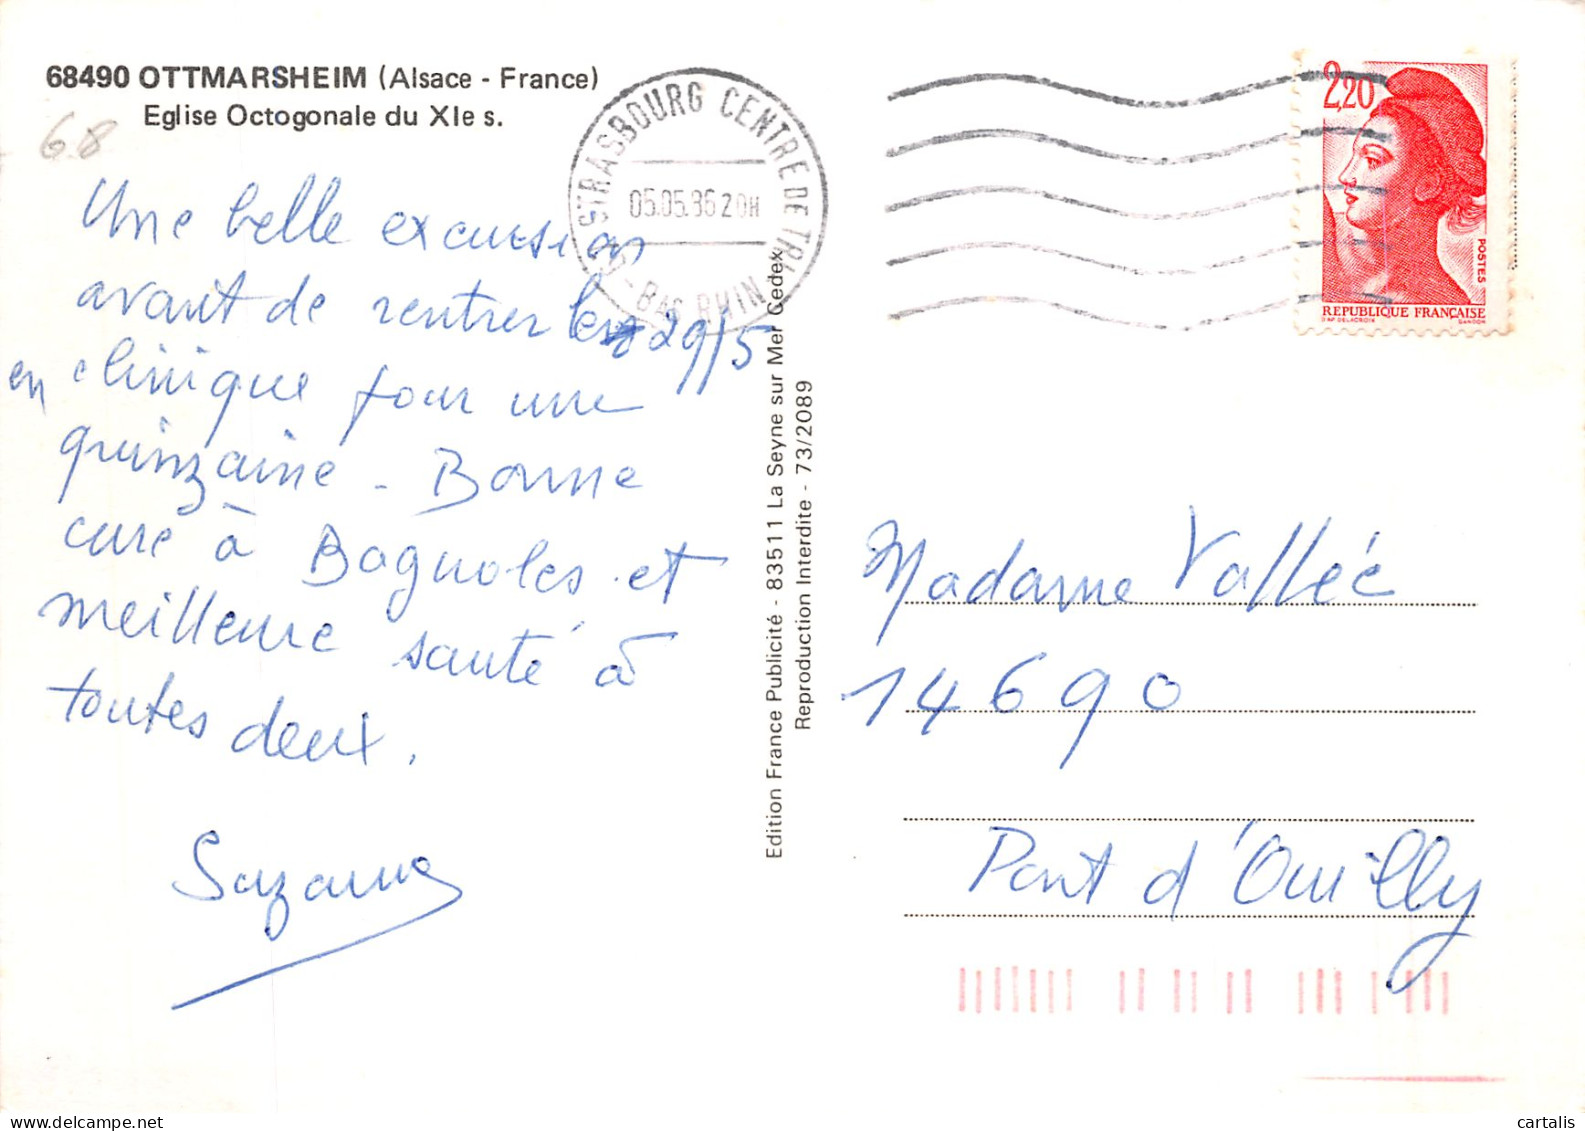 68490 OTTMARSHEIM (Alsace - France)
Eglise Octogonale du XIe s.
68
Une belle excursion
avant de rentrer le 29/5
en clinique pour une
quinzaine - Bonne
cure à Bagnoles et
meilleure santé à
toutes deux.
Suzanne
Edition France Publicité - 83511 La Seyne sur Mer Cedex
Reproduction Interdite - 73/2089
STRASBOURG CENTRE DE TRI
BAS RHIN
05.05.86 20H
2,20
POSTES
REPUBLIQUE FRANÇAISE
D'AP DELACROIX GANDON
Madame Vallée
14690
Pont d'Ouilly
cartalis
delcampe.net